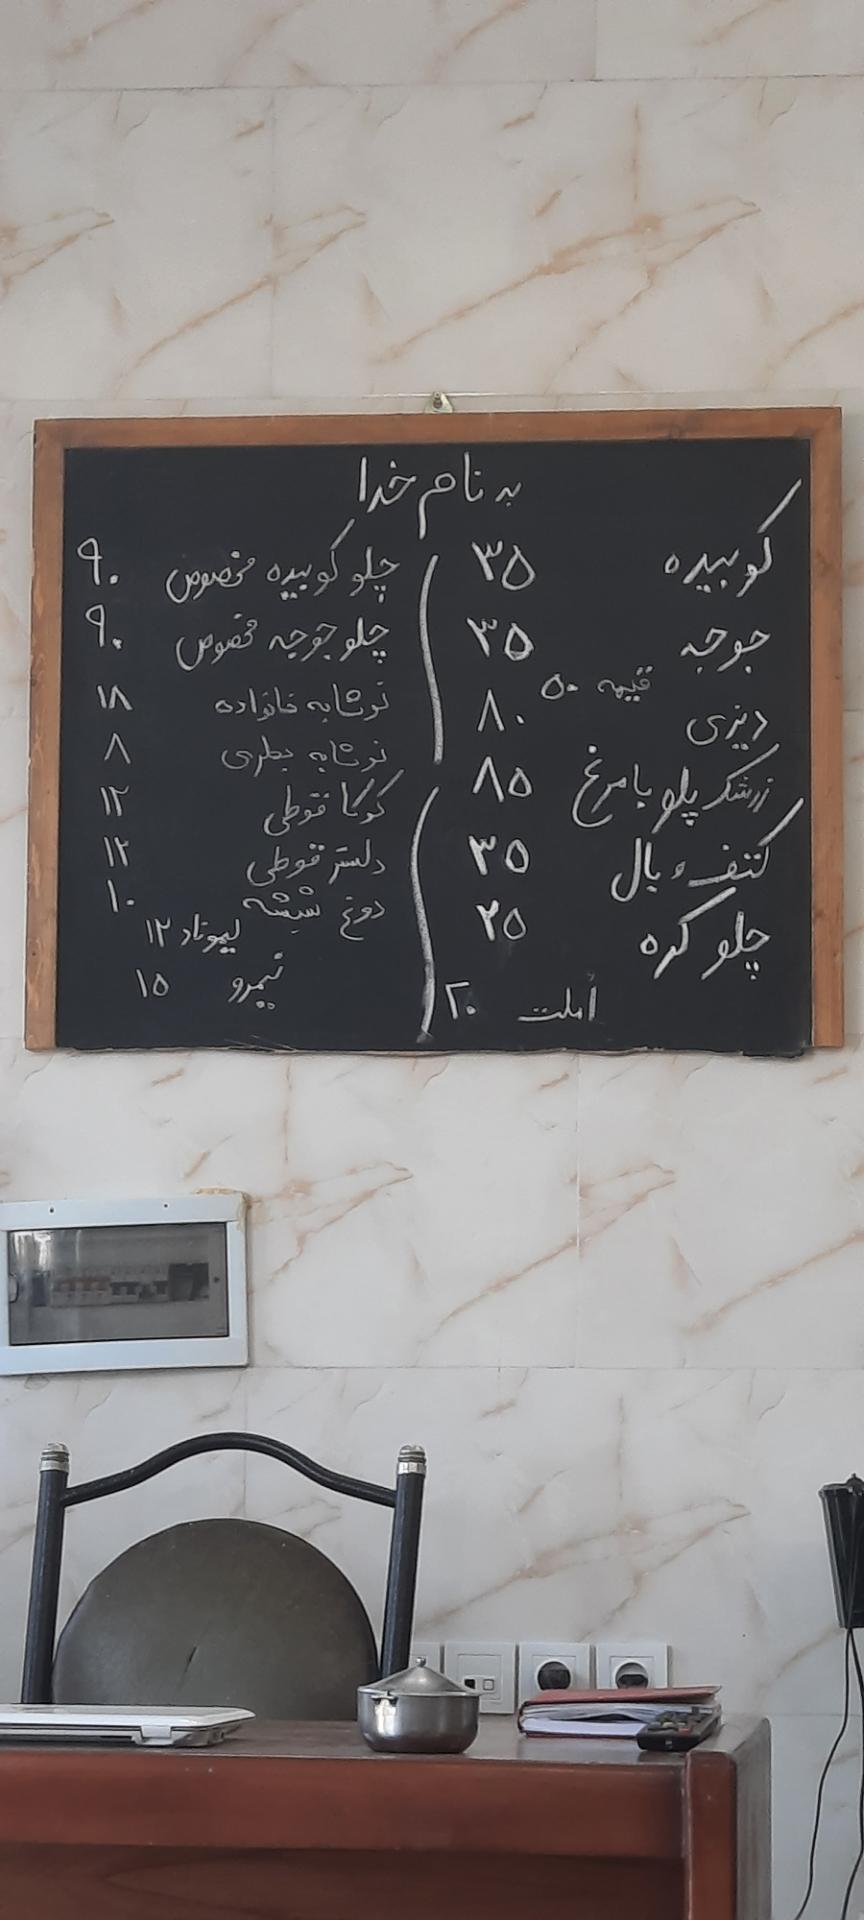 به نام خدا
کوبیده ۳۵
جوجه ۳۵
قیمه ۵۰
دیزی ۸۰
زرشک پلو با مرغ ۸۵
کتف و بال ۳۵
چلو کره ۲۵
أملت ۲۰
چلو کوبیده مخصوص ۹۰
چلو جوجه مخصوص ۹۰
نوشابه خانواده ۱۸
نوشابه بطری ۸
کوکا قوطی ۱۲
دلستر قوطی ۱۲
دوغ شیشه ۱۰
لیموناد ۱۲
نیمرو ۱۵